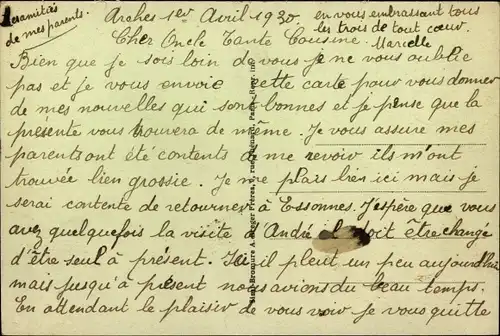 Les amitiés
de mes parents.
Arches 1er Avril 1930
en vous embrassant tous
les trois de tout cœur.
Marcelle
Cher Oncle Tante Cousine
Bien que je sois loin de vous je ne vous oublie
pas et je vous envoie cette carte pour vous donner
de mes nouvelles qui sont bonnes et je pense que la
présente vous trouvera de même. Je vous assure mes
parents ont été contents de me revoir ils m'ont
trouvée bien grossie. Je me plais bien ici mais je
serai contente de retourner à Essonnes. J'espère que vous
avez quelquefois la visite de André il doit être change
d'être seul à présent. Ici il pleut un peu aujourd'hui
mais jusqu'à présent nous avions du beau temps.
En attendant le plaisir de vous voir je vous quitte